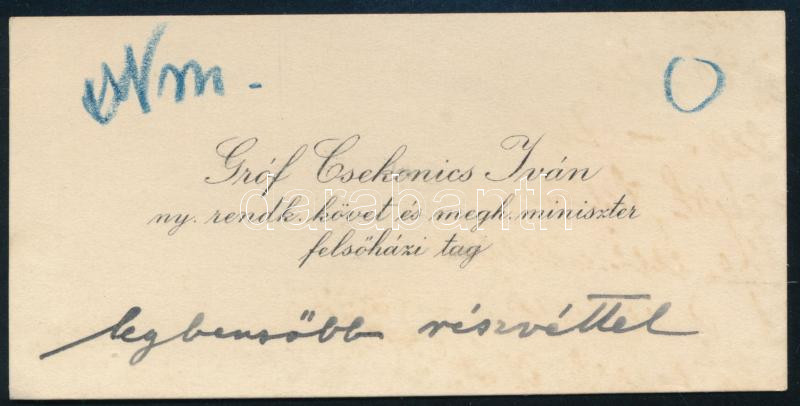 Gróf Csekonics Iván
ny. rendk. követ és megh. miniszter
felsőházi tag
legbensőbb részvéttel
darabanth